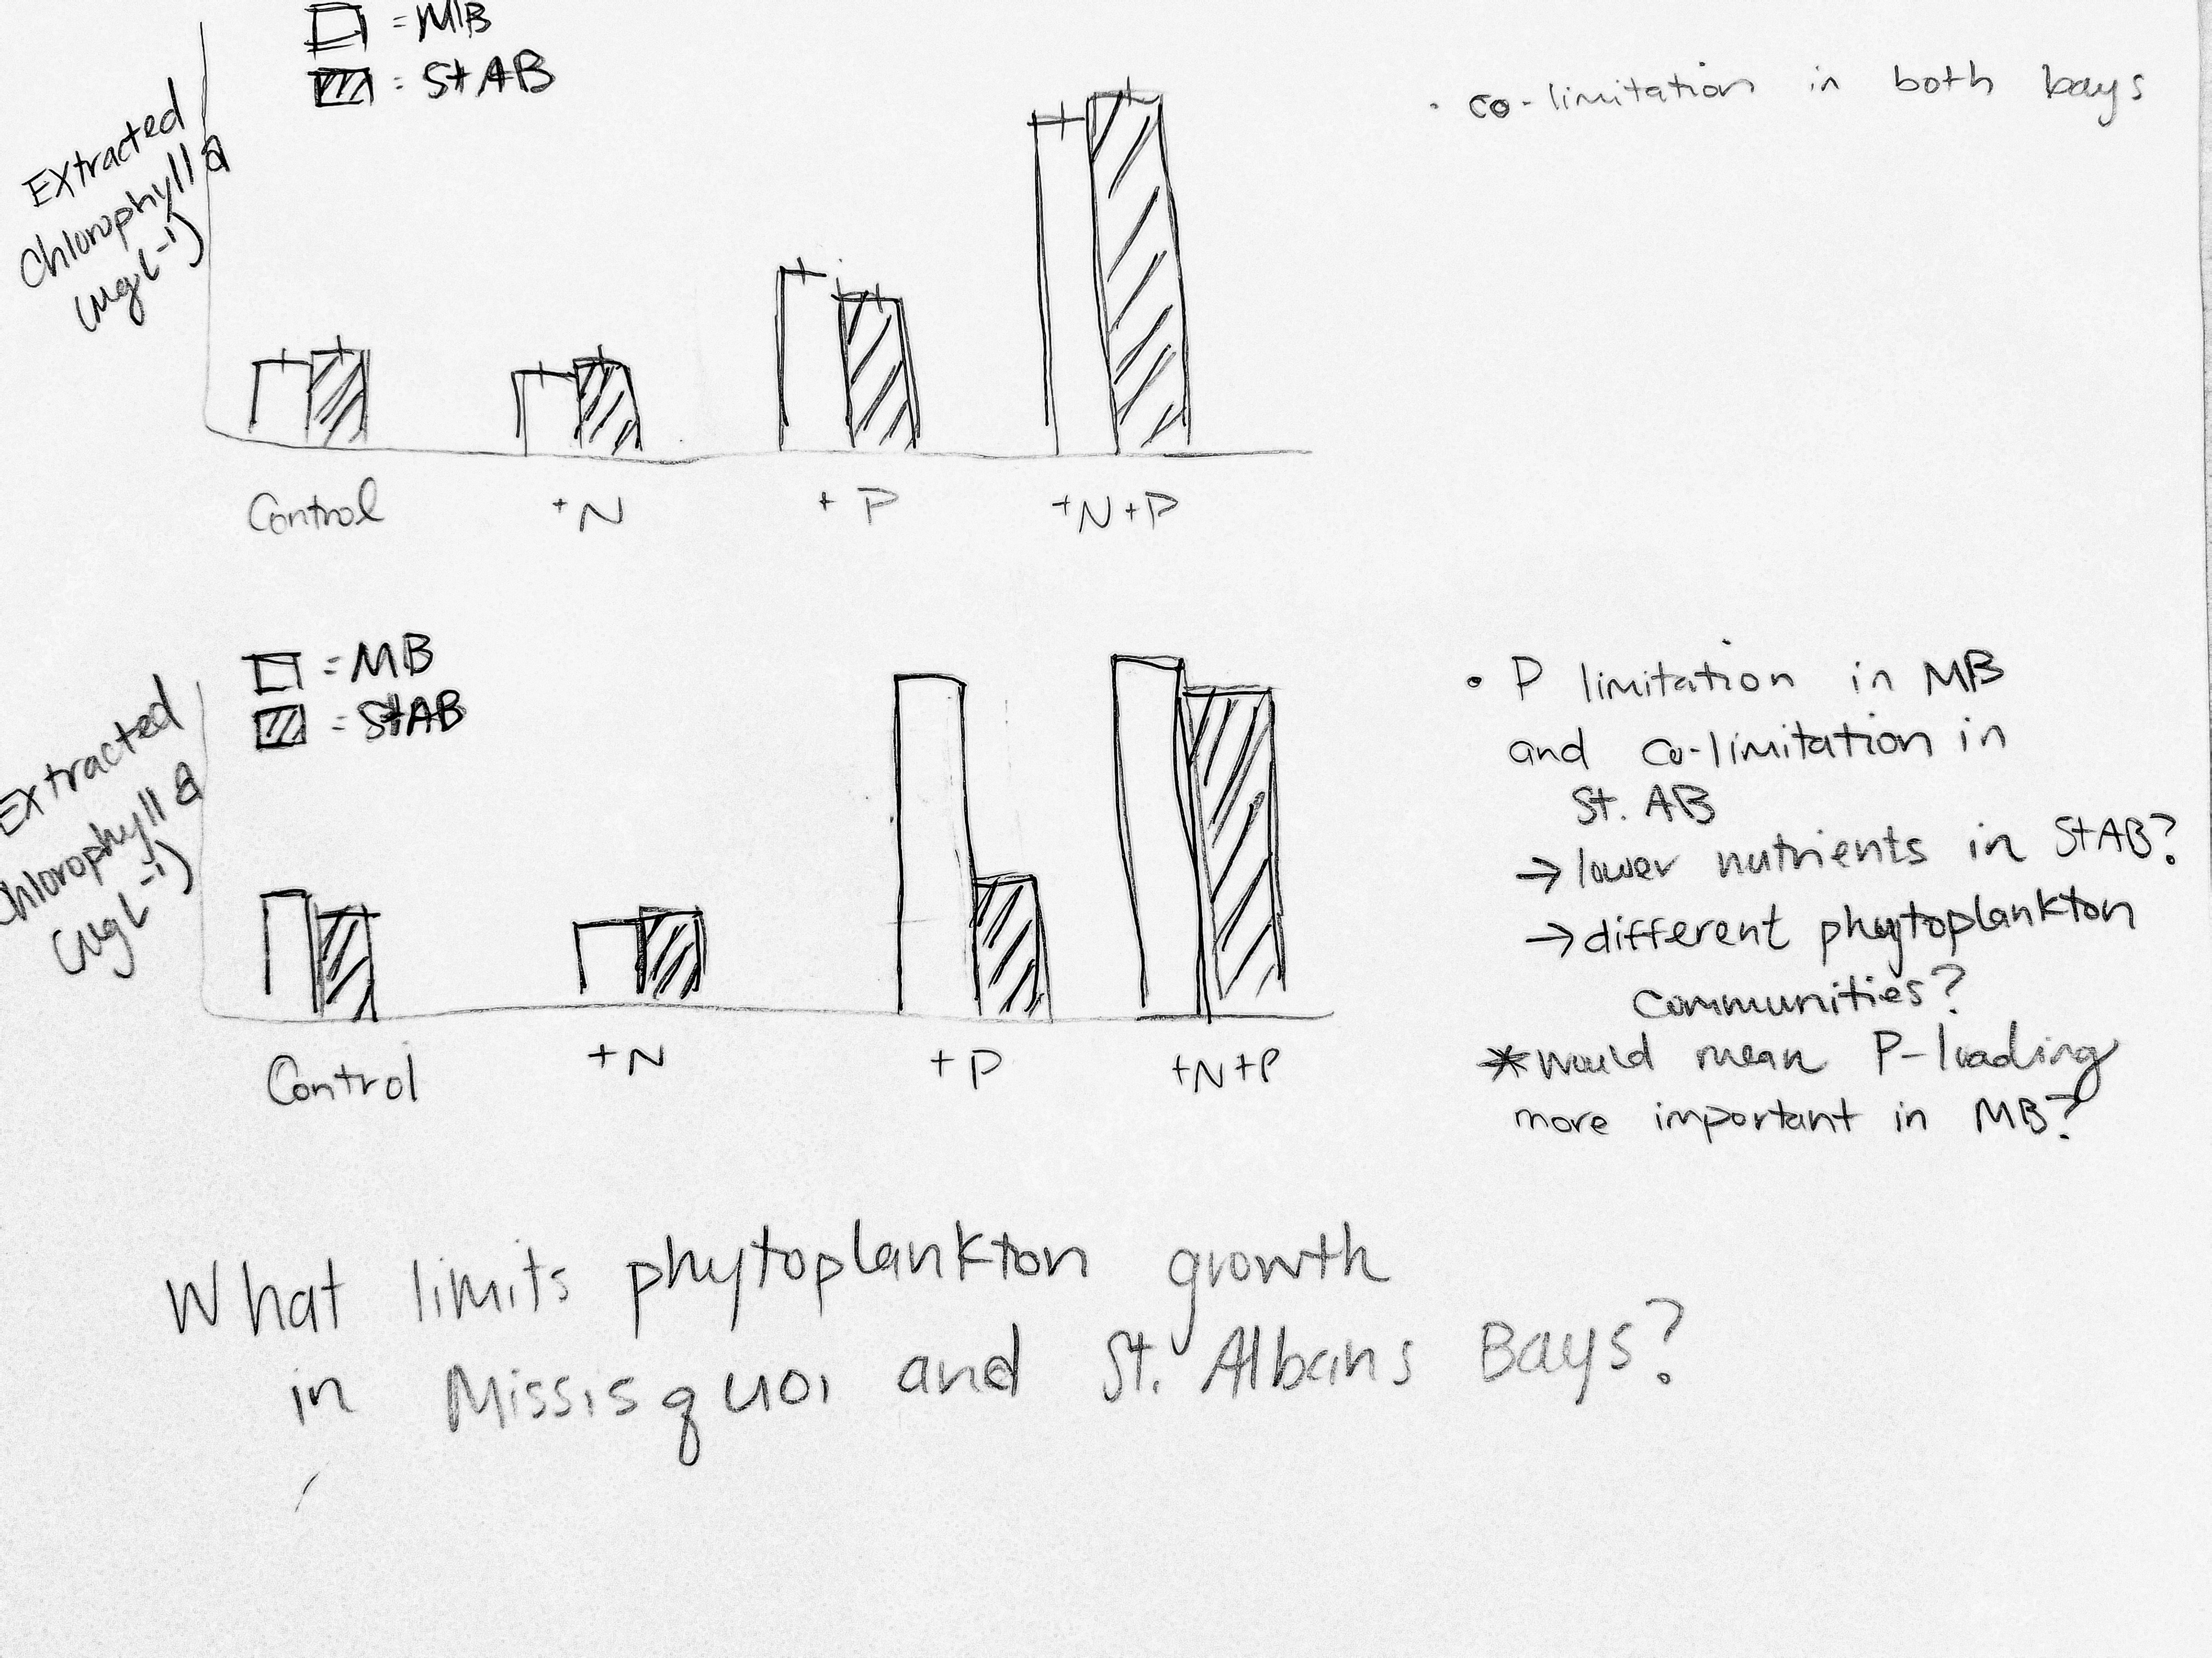 = MB
= StAB
Extracted
Chlorophyll a
(ug L-1)
Control
+N
+ P
+N+P
· co-limitation in both bays
= MB
= StAB
Extracted
Chlorophyll a
(ug L-1)
Control
+N
+ P
+N+P
• P limitation in MB
and co-limitation in
St. AB
→ lower nutrients in StAB?
→ different phytoplankton
communities?
* would mean P-loading
more important in MB?
What limits phytoplankton growth
in Missisquoi and St. Albans Bays?